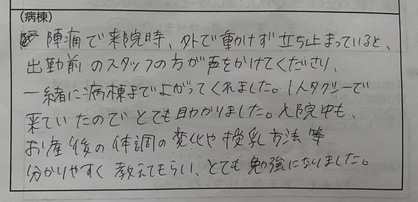 (病棟)
陣痛で来院時、外で動けず立ち止まっていると、
出勤前のスタッフの方が声をかけてくださり、
一緒に病棟まで上がってくれました。1人タクシーで
来ていたのでとても助かりました。入院中も、
お産後の体調の変化や授乳方法等
分かりやすく教えてもらい、とても勉強になりました。